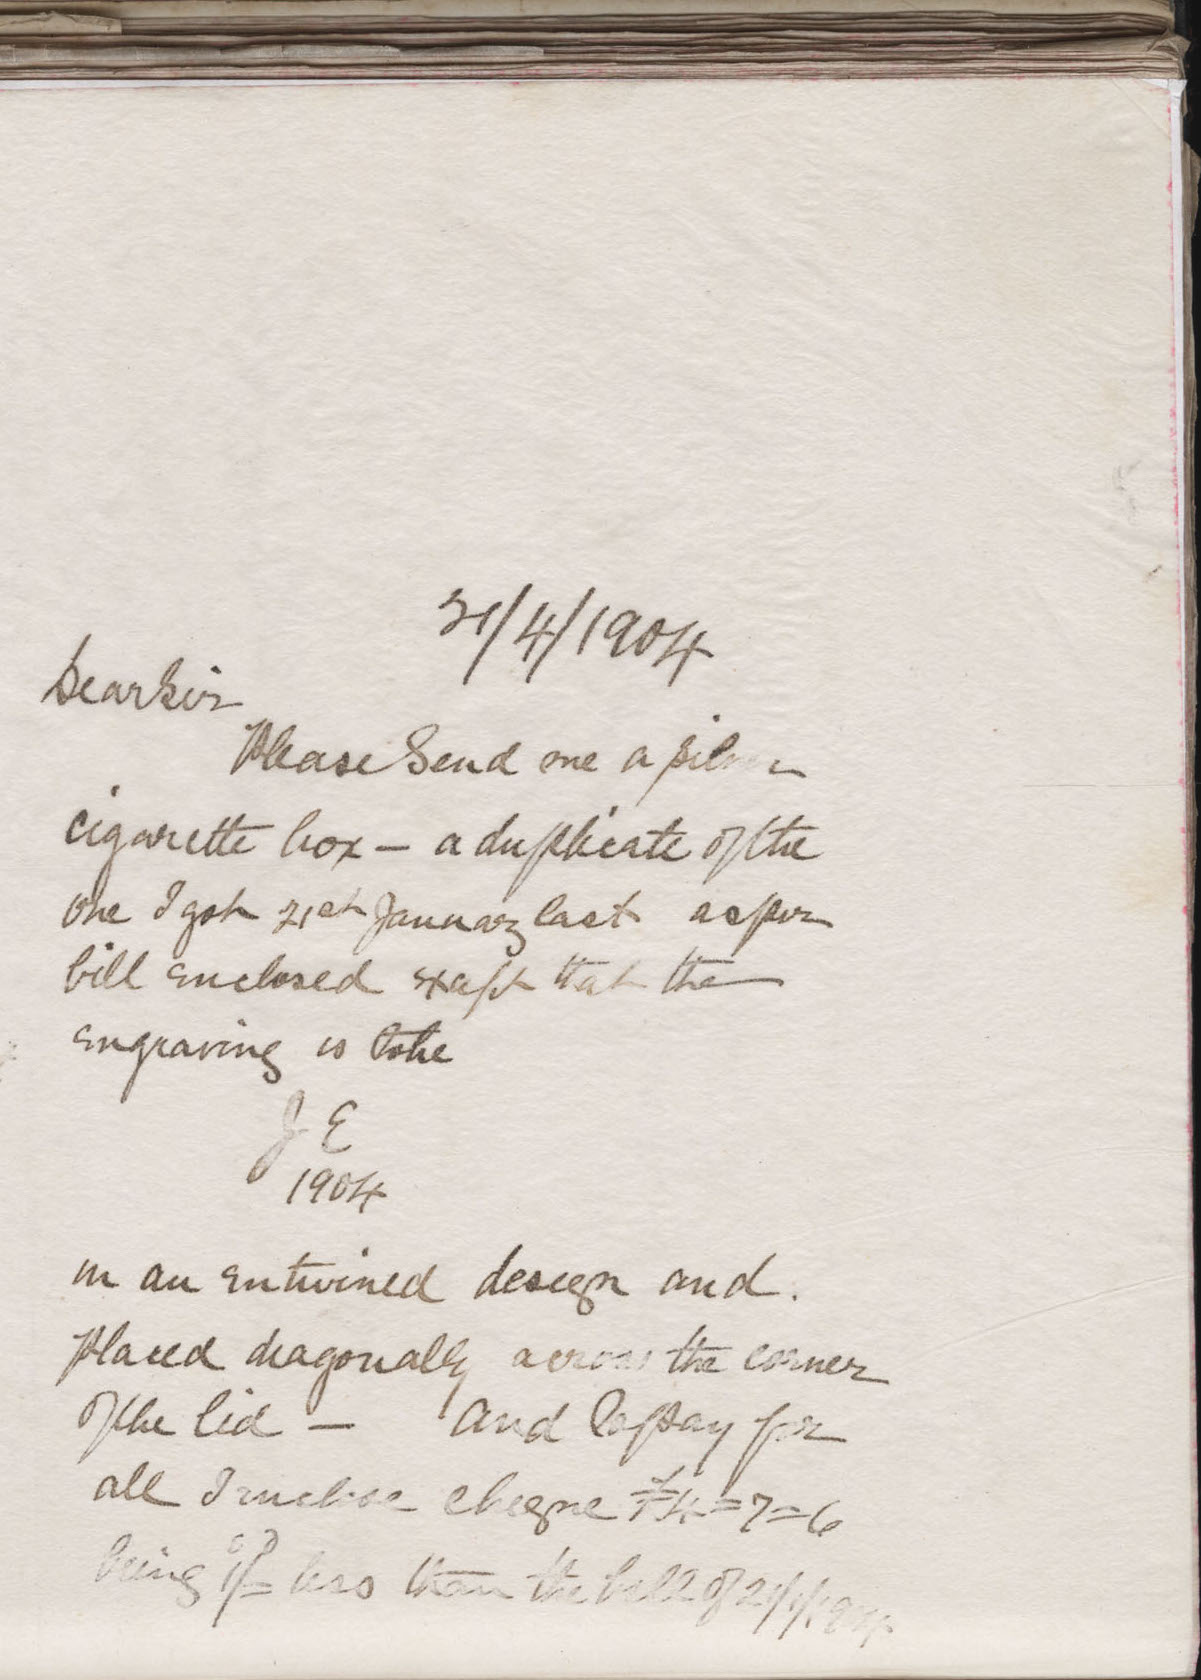 21/4/1904
Dear Sir
Please Send me a silver
cigarette box – a duplicate of the
one I got 21st January last as per
bill enclosed except that the
engraving is to be
J E
1904
in an entwined design and.
placed diagonally across the corner
of the lid – and to pay for
all I enclose cheque £4=7=6
being less than the bill of 21/1/1904